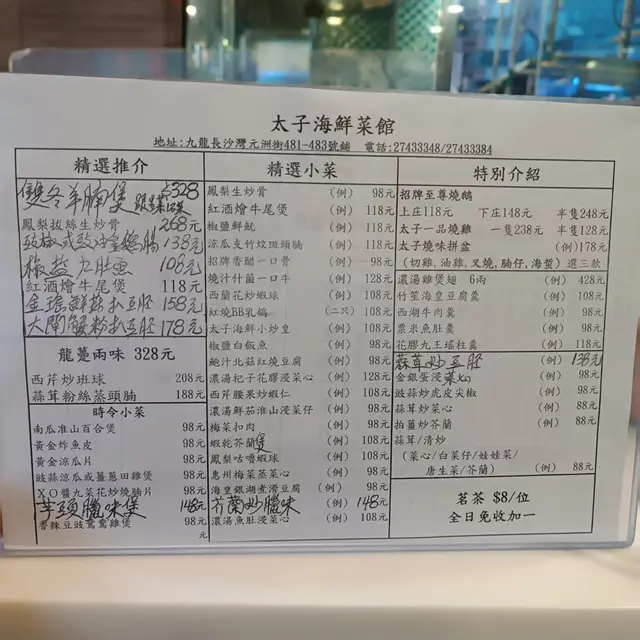 太子海鮮菜館
地址:九龍長沙灣元洲街481-483號舖 電話:27433348/27433384
精選推介
雙冬羊腩煲 $328
鳳梨拔絲生炒骨 268元
138元
椒鹽九肚魚 108元
紅酒燴牛尾煲 118元
金瑤鮮菇扒豆苗 158元
大閘蟹粉扒豆苗 178元
龍躉兩味 328元
西芹炒班球 208元
蒜茸粉絲蒸頭腩 188元
時令小菜
南瓜淮山百合煲 98元
黃金炸魚皮 98元
黃金涼瓜片 98元
豉味涼瓜或薑蔥田雞煲 98元
XO醬九菜花炒燒腩片 98元
芋頭臘味煲 148元
香辣豆豉鴛鴦雞煲 98元
元
精選小菜
鳳梨生炒骨 (例) 98元
紅酒燴牛尾煲 (例) 118元
椒鹽鮮魷 (例) 118元
涼瓜炆竹炆斑頭腩 (例) 118元
招牌香醋一口骨 (例) 98元
燒汁什菌一口牛 (例) 128元
西蘭花炒蝦球 (例) 108元
紅燒BB乳鴿 (二只) 108元
太子海鮮小炒皇 (例) 108元
椒鹽白飯魚 (例) 98元
鮑汁北菇紅燒豆腐 (例) 98元
濃湯杞子花膠浸菜心 (例) 128元
西芹腰果炒蝦仁 (例) 108元
濃湯鮮茄淮山浸菜仔 (例) 98元
梅菜扣肉 (例) 98元
蝦乾芥蘭煲 (例) 98元
鳳梨咕嚕蝦球 (例) 108元
惠州梅菜蒸菜心 (例) 98元
海皇銀湖煮滑豆腐 (例) 98元
芥蘭炒臘味 (例) 148元
濃湯魚肚浸菜心 (例) 108元
特別介紹
招牌至尊燒鵝
上庄118元 下庄148元 半隻248元
太子一品燒雞 一隻238元 半隻128元
太子燒味拼盆 (例)178元
(切雞,油雞,叉燒,腩仔,海蜇) 選三款
濃湯雞煲翅 6兩 (例) 428元
竹笙海皇豆腐羹 (例) 108元
西湖牛肉羹 (例) 98元
粟米魚肚羹 (例) 98元
花膠九王瑤柱羹 (例) 108元
蒜茸炒豆苗 (例) 138元
金銀蛋浸菜心 (例) 98元
豉蒜炒虎皮尖椒 (例) 98元
蒜茸炒菜心 (例) 88元
拍薑炒芥蘭 (例) 88元
蒜茸/清炒
(菜心/白菜仔/娃娃菜/
唐生菜/芥蘭) (例) 88元
茗茶 $8/位
全日免收加一